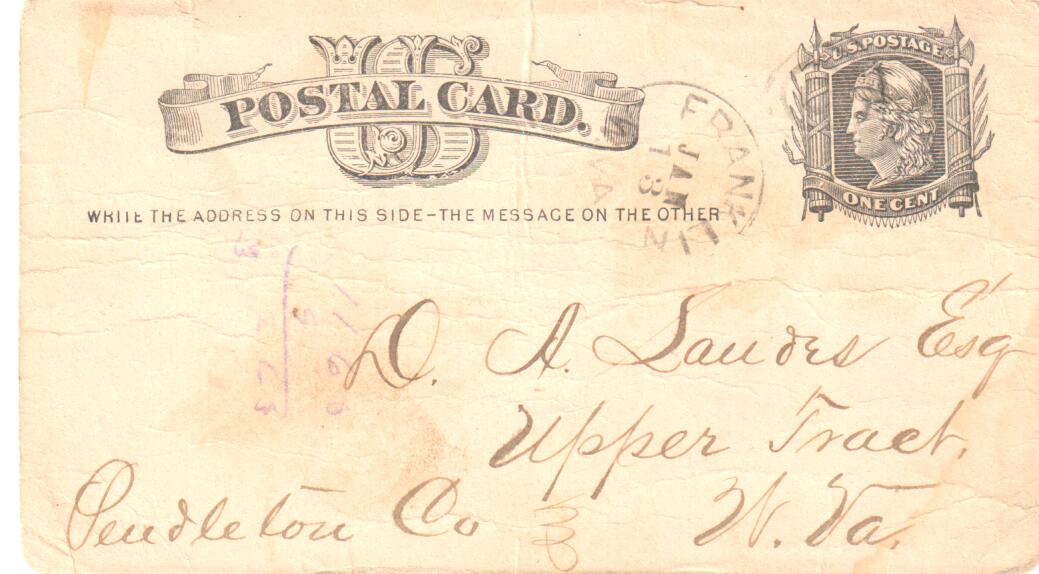 US
POSTAL CARD.
U.S. POSTAGE
ONE CENT
WRITE THE ADDRESS ON THIS SIDE–THE MESSAGE ON THE OTHER
FRANKLIN
JAN
18
W. VA
D. A. Landes Esq
Upper Tract,
Pendleton Co W. Va.